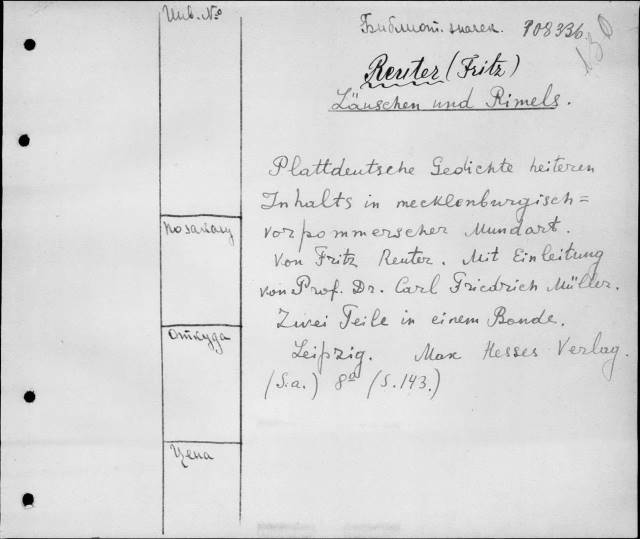 Инв. №
Библиот. знаех. 908336
130
Reuter (Fritz)
Läuschen und Rimels.
Plattdeutsche Gedichte heiteren
Inhalts in mecklenburgisch=
vorpommerscher Mundart.
von Fritz Reuter. Mit Einleitung
von Prof. Dr. Carl Friedrich Müller.
Zwei Teile in einem Bande.
Leipzig. Max Hesses Verlag.
(S.a.) 8º (S.143.)
По заказу
Откуда
Цена